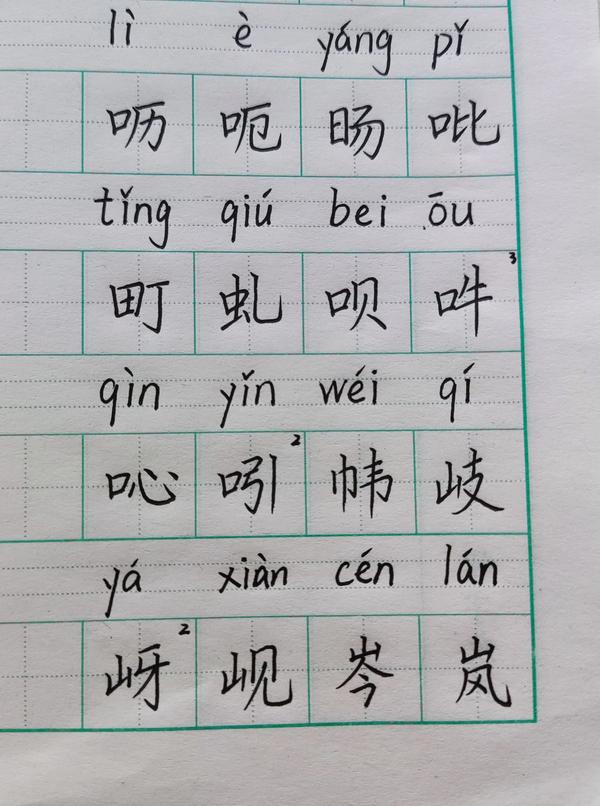 lì è yáng pǐ
呖 呃 旸 吡
tǐng qiú bei ōu
町 虬 呗 吽3
qìn yǐn wéi qí
吣 吲2 帏 岐
yá xiàn cén lán
岈2 岘 岑 岚